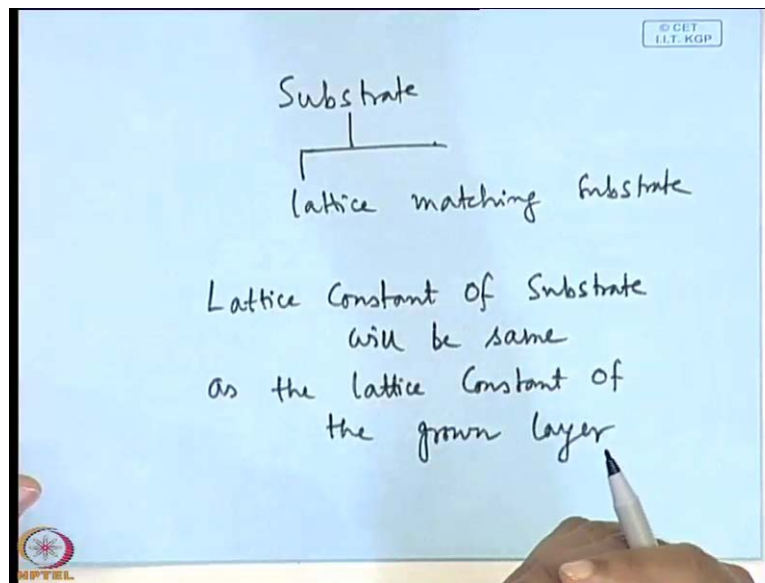 © CET
I.I.T. KGP
Substrate
lattice matching Substrate
Lattice Constant of Substrate
will be same
as the lattice Constant of
the grown layer
NPTEL